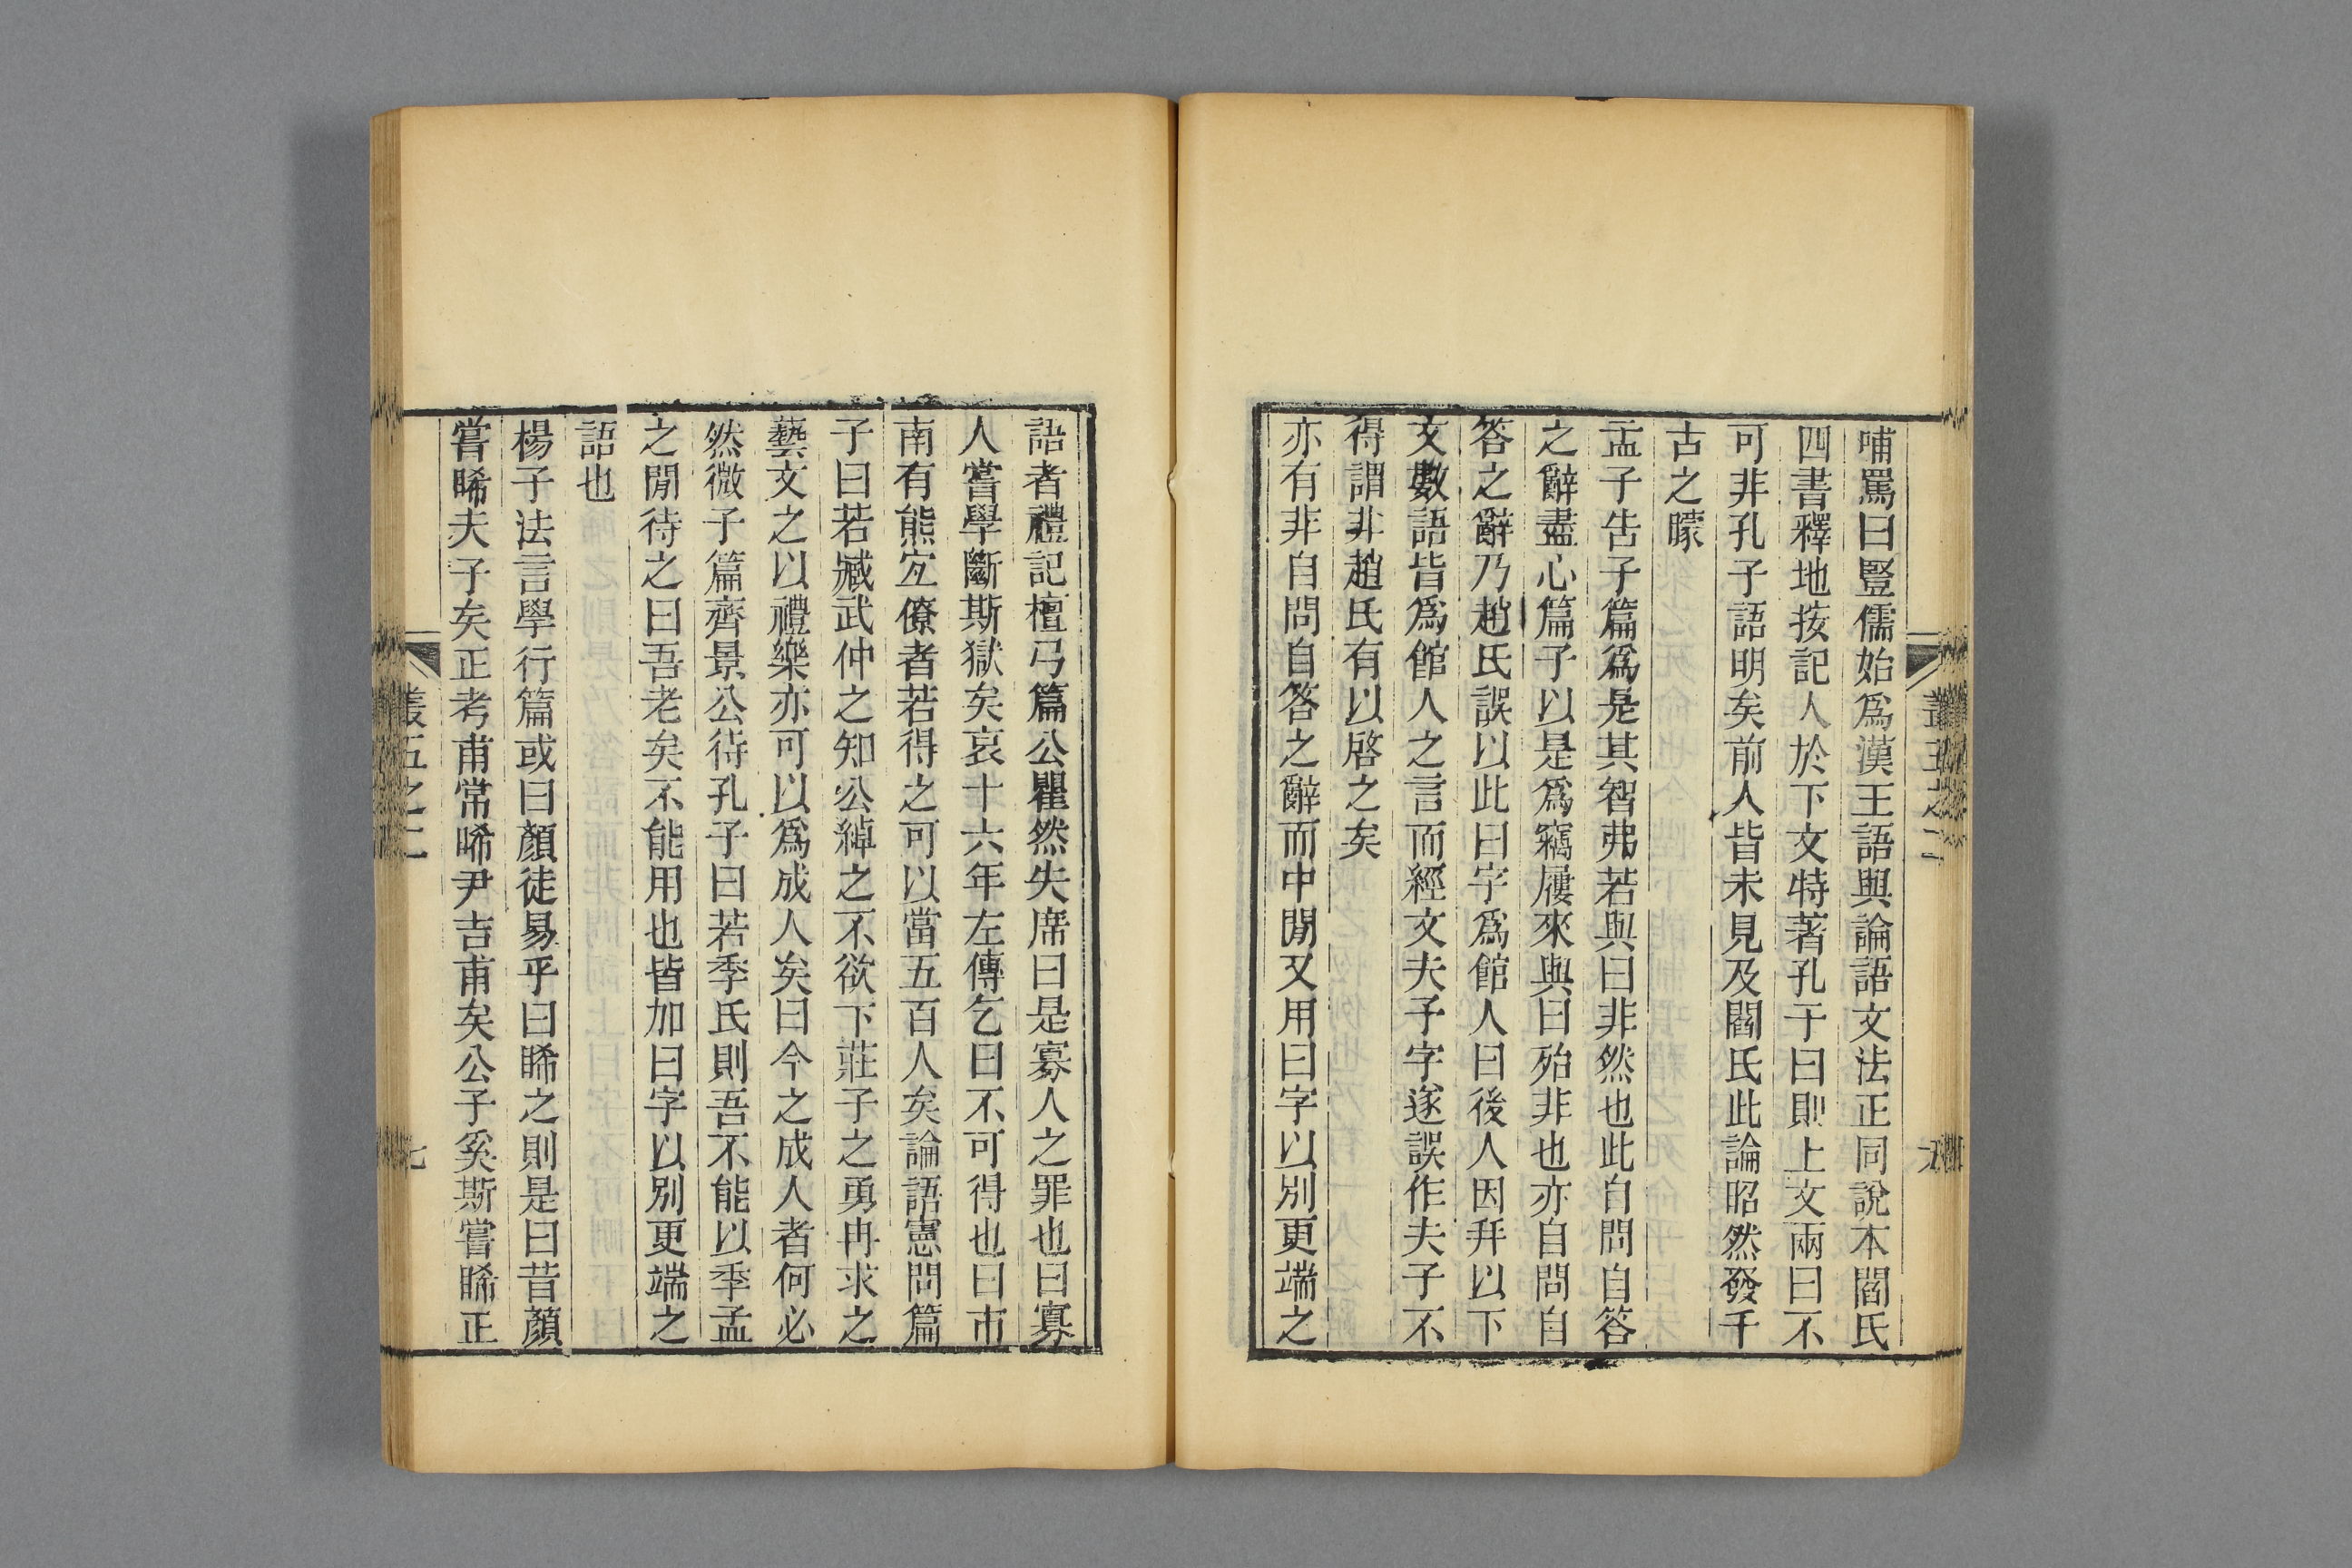 哺罵曰豎儒始爲漢王語與論語文法正同說本閻氏
四書釋地按記人於下文特著孔子曰則上文兩曰不
可非孔子語明矣前人皆未見及閻氏此論昭然發千
古之矇
孟子告子篇爲是其智弗若與曰非然也此自問自答
之辭盡心篇子以是爲竊屨來與曰殆非也亦自問自
答之辭乃趙氏誤以此曰字爲館人曰後人因幷以下
文數語皆爲館人之言而經文夫予字遂誤作夫子不
得謂非趙氏有以啓之矣
亦有非自問自答之辭而中閒又用曰字以別更端之
語者禮記檀弓篇公瞿然失席曰是寡人之罪也曰寡
人嘗學斷斯獄矣哀十六年左傳乞曰不可得也曰市
南有熊宐僚者若得之可以當五百人矣論語憲問篇
子曰若臧武仲之知公綽之不欲卞莊子之勇冉求之
藝文之以禮樂亦可以爲成人矣曰今之成人者何必
然微子篇齊景公待孔子曰若季氏則吾不能以季孟
之閒待之曰吾老矣不能用也皆加曰字以別更端之
語也
楊子法言學行篇或曰顏徒易乎曰睎之則是曰昔顏
嘗睎夫子矣正考甫常睎尹吉甫矣公子奚斯嘗睎正
叢五之二
七